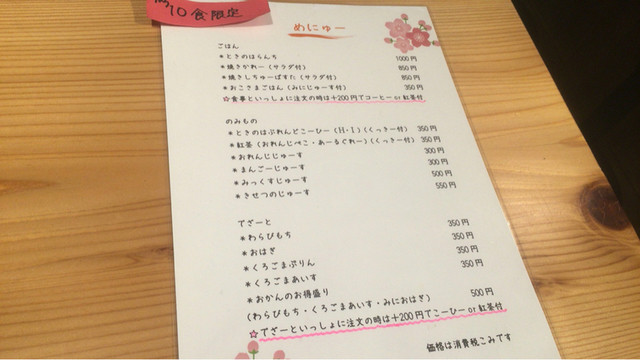 10食限定
めにゅー
ごはん
＊ときのはらんち 1000円
＊焼きかれー（サラダ付） 850円
＊焼きしちゅーぱすた（サラダ付） 850円
＊おこさまごはん（みにじゅーす付） 350円
☆食事といっしょに注文の時は＋200円でコーヒー or 紅茶付
のみもの
＊ときのはぶれんどこーひー（H・I）（くっきー付） 350円
＊紅茶（おれんじぺこ・あーるぐれー）（くっきー付） 350円
＊おれんじじゅーす 300円
＊まんごーじゅーす 300円
＊みっくすじゅーす 500円
＊きせつのじゅーす 550円
でざーと
＊わらびもち 350円
＊おはぎ 350円
＊くろごまぷりん 350円
＊くろごまあいす 350円
＊おかんのお得盛り
（わらびもち・くろごまあいす・みにおはぎ） 500円
☆でざーといっしょに注文の時は＋200円でこーひー or 紅茶付
価格は消費税こみです